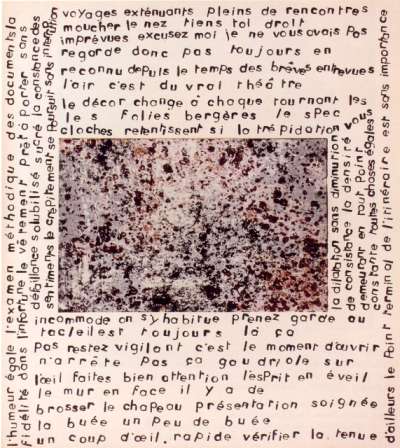 voyages exténuants pleins de rencontres
moucher le nez tiens toi droit
imprévues excusez moi je ne vous avais pas
regarde donc pas toujours en
reconnu depuis le temps des brèves entrevues
l'air c'est du vrai théâtre
le décor change à chaque tournant les
les folies bergères le spec
cloches retentissent si la trépidation
incommode on s'y habitue prenez garde au
tacleilest toujours là ça
pas restez vigilant c'est le moment d'ouvrir
n'arrête pas ça goudriole sur
l'œil faites bien attention l'esprit en éveil
le mur en face il y a de
brosser le chapeau présentation soignée
la buée un peu de buée
un coup d'œil rapide vérifier la tenue
l'humeur égale l'examen méthodique des documents la
fidélité dans l'infortune le vêtement prêt à porter sans
défaillance solubilisé sucré la constance des
sentiments le crépitement se poursuit sans interruption
la dilatation sans diminution vous
de consistance la densité
demeurant en tout point
constante toutes choses égales
d'ailleurs le point terminal de l'itinéraire est sans importance